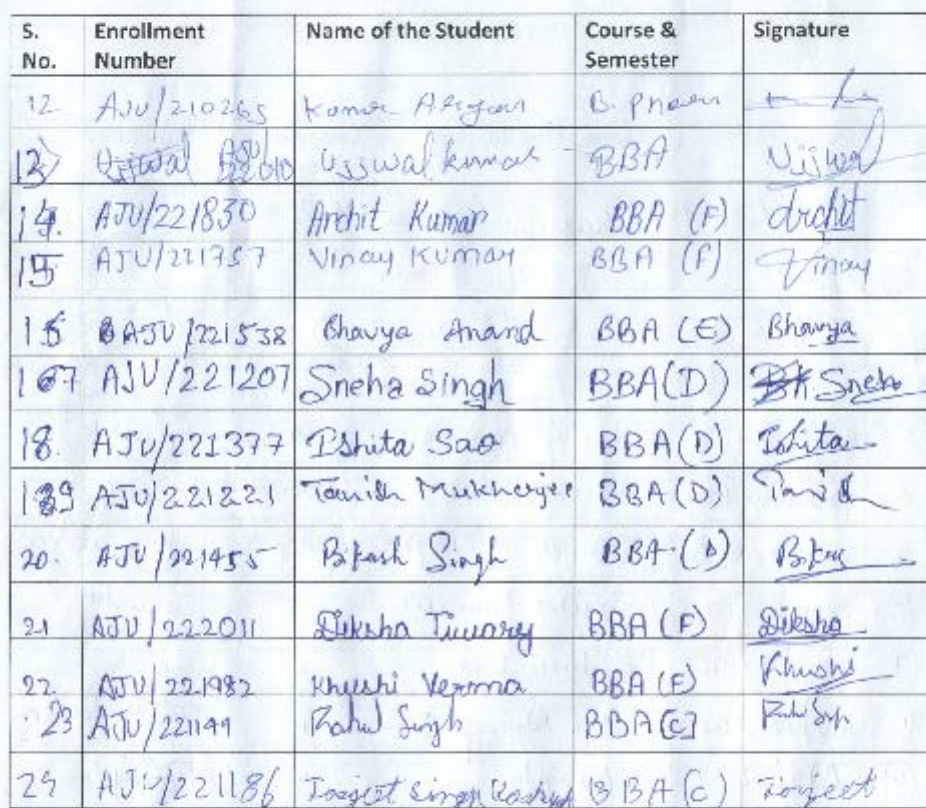 S. No. Enrollment Number Name of the Student Course & Semester Signature
12 AJU/210265 Kumar Aryan B. Pharm
13 Ujjwal Kumar BBA Ujjwal
14. AJU/221830 Archit Kumar BBA (F) Archit
15 AJU/221757 Vinay Kumar BBA (F) Vinay
16 AJU/221538 Bhavya Anand BBA (E) Bhavya
17 AJU/221207 Sneha Singh BBA(D) Sneha
18. AJU/221377 Ishita Sao BBA(D) Ishita
19 AJU/221221 Tanish Mukherjee BBA(D)
20. AJU/221455 Bikash Singh BBA (D)
21 AJU/222011 Diksha Tiwary BBA (F) Diksha
22 AJU/221982 Khushi Verma BBA (F) Khushi
23 AJU/221149 Rahul Singh BBA[C]
24 AJU/221186 Singh BBA(C)